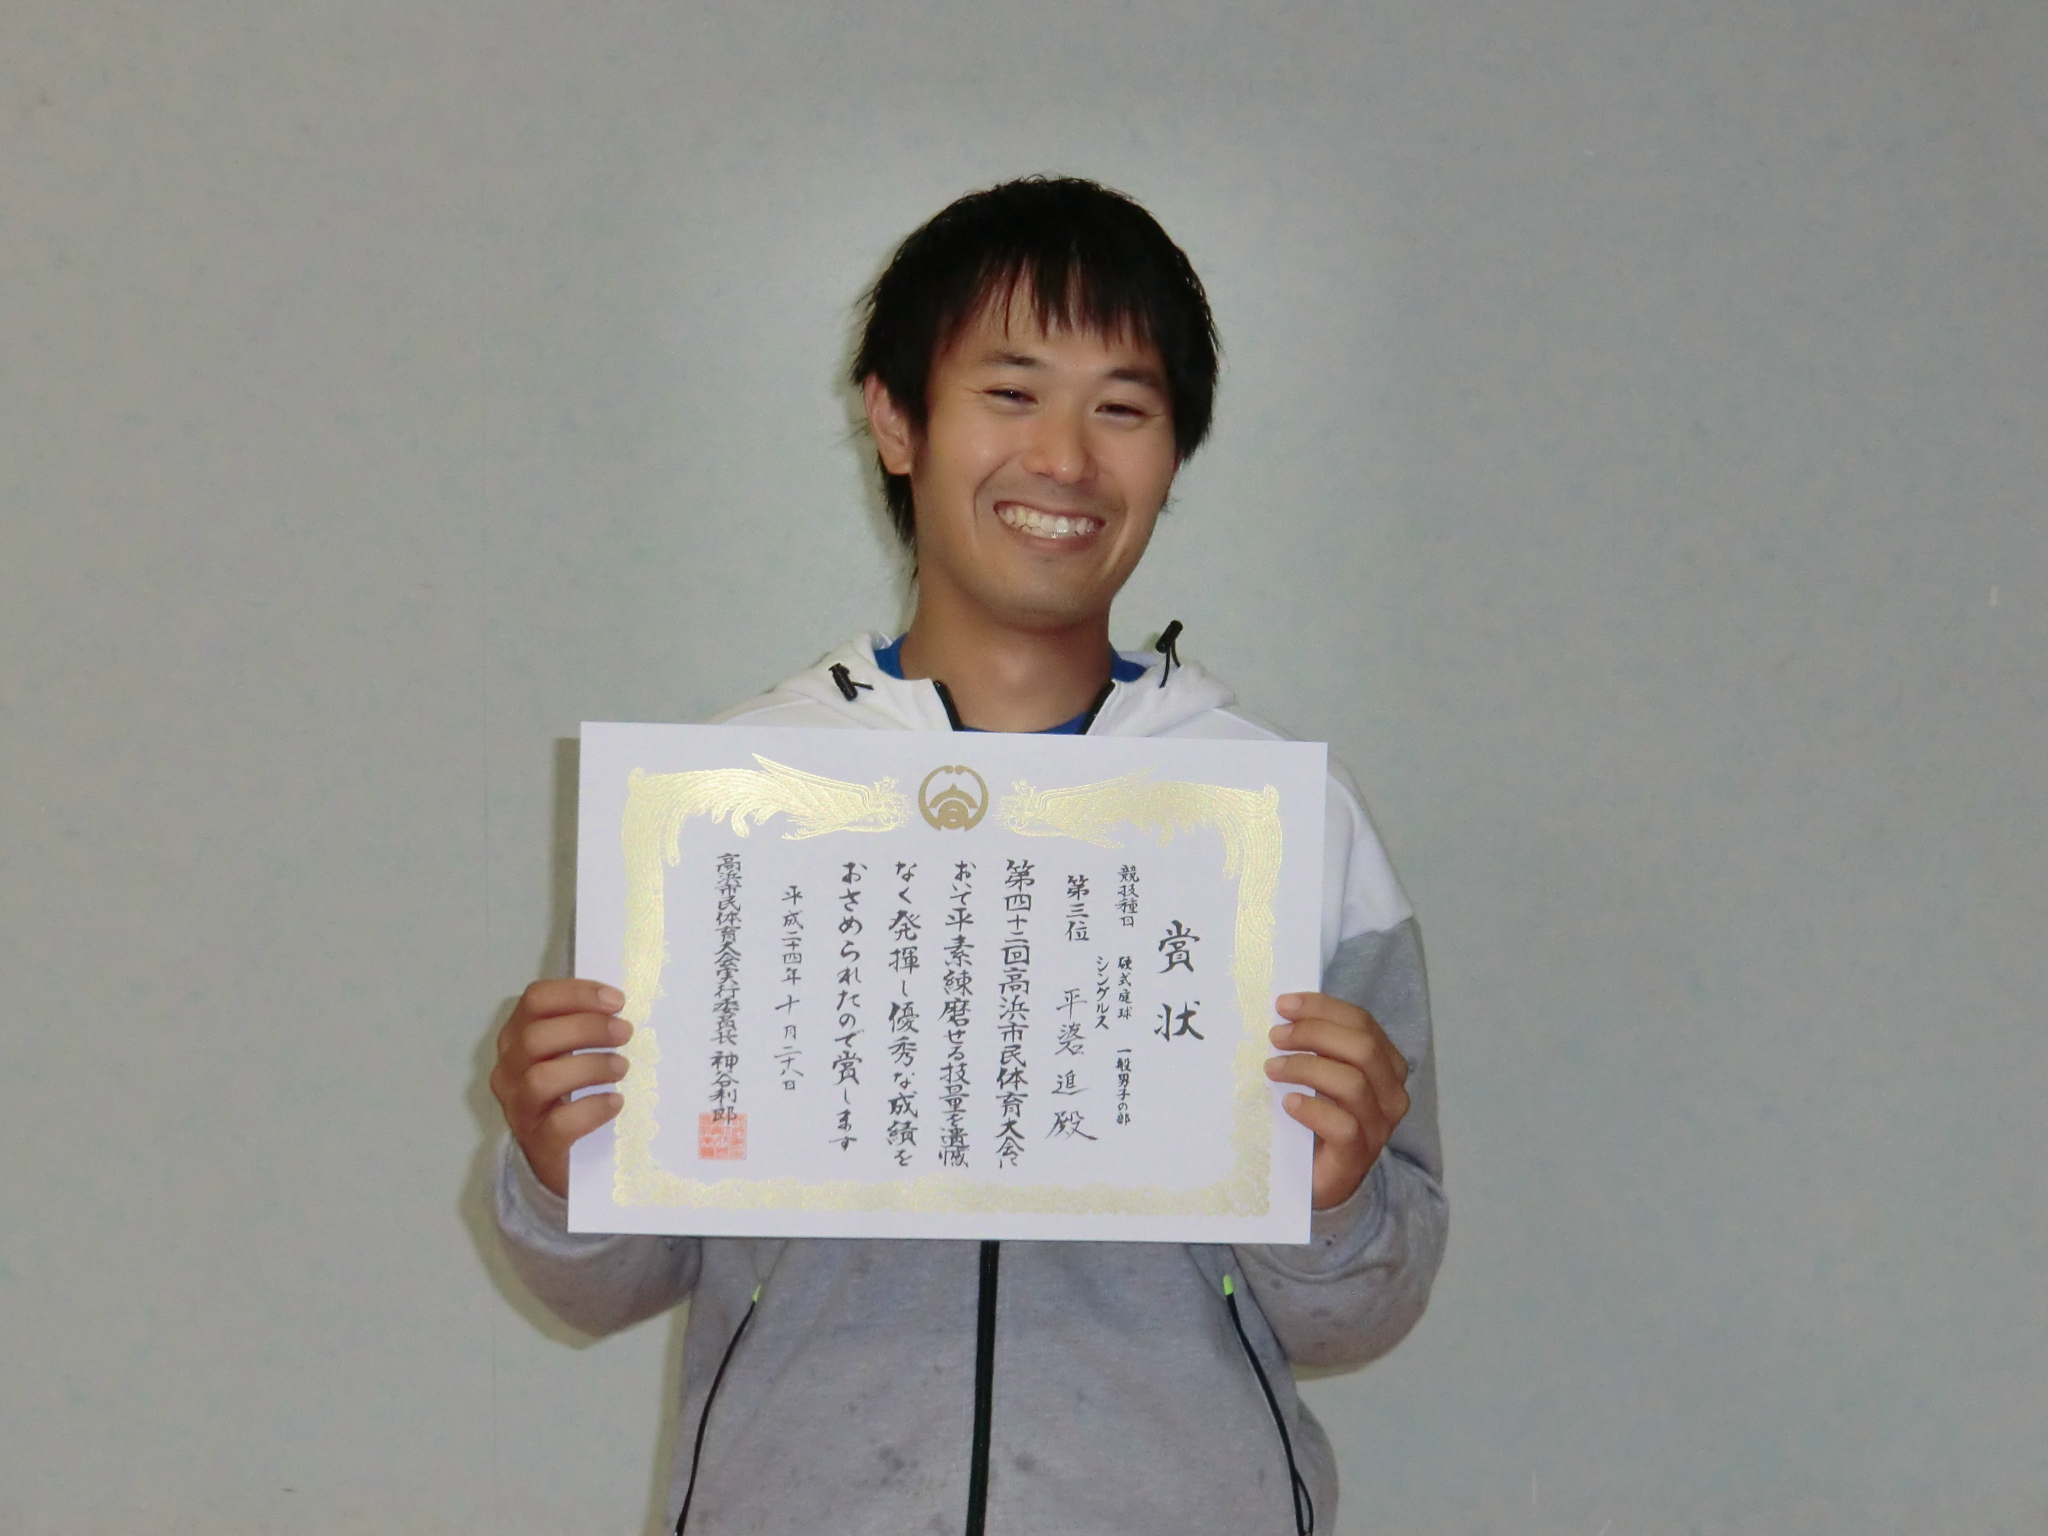 賞状
競技種目 硬式庭球 一般男子の部
シングルス
第三位 平 進 殿
第四十二回高浜市民体育大会に
おいて平素練磨せる技量を遺憾
なく発揮し優秀な成績を
おさめられたので賞します
平成二十四年十月二十八日
高浜市民体育大会実行委員長 神谷利郎